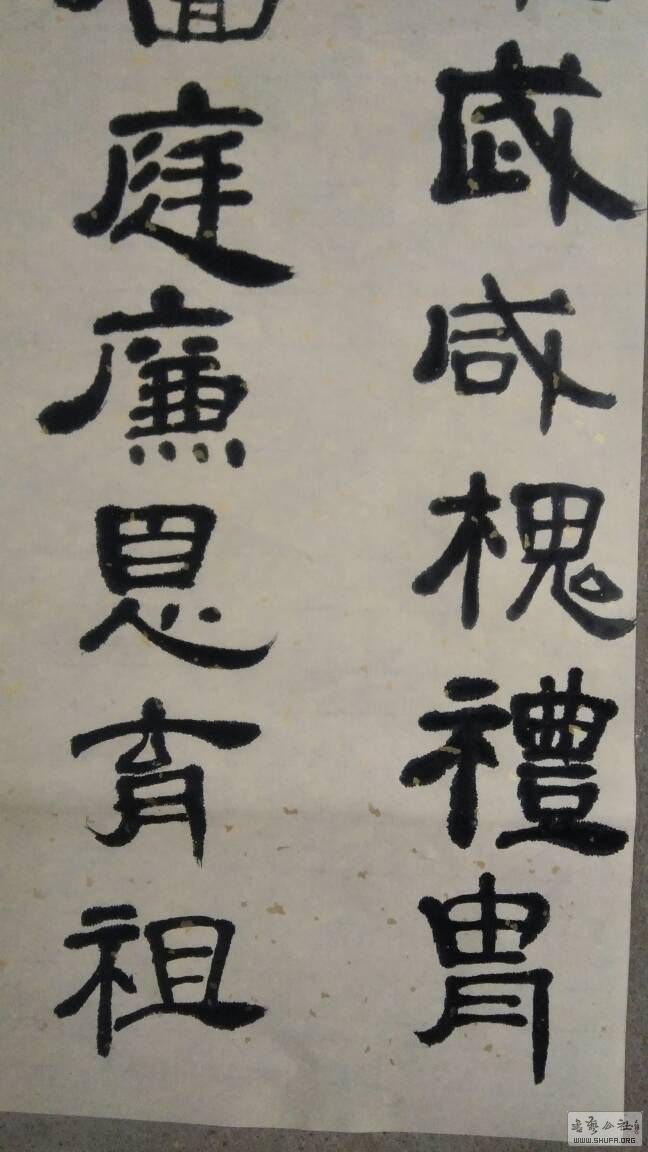 咸槐禮胄
庭廉恩育祖
书艺公社
WWW.SHUFA.ORG